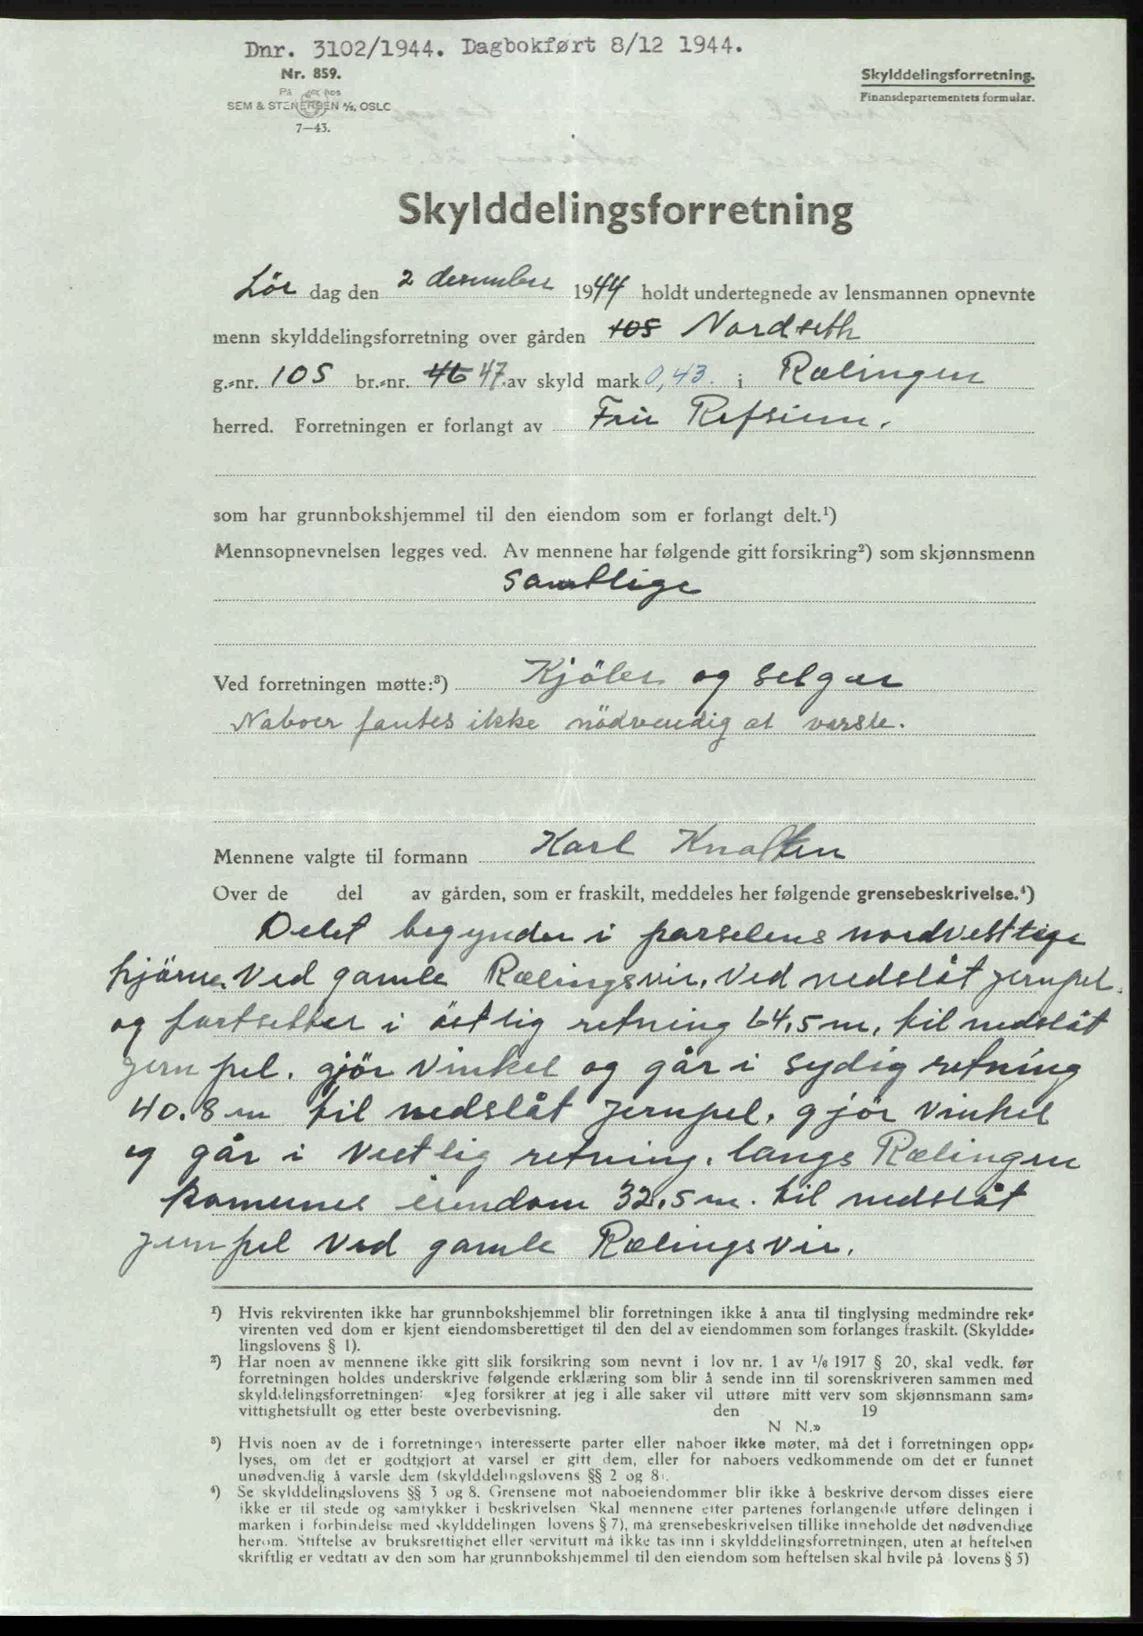 Dnr. 3102/1944. Dagbokført 8/12 1944.
Nr. 859.
SEM & STENERSEN A/S, OSLO
7—43.
Skylddelingsforretning.
Finansdepartementets formular.
Skylddelingsforretning
Lör dag den 2 desember 1944 holdt undertegnede av lensmannen opnevnte
menn skylddelingsforretning over gården 105 Nordseth
g.-nr. 105 br.-nr. 46 47 av skyld mark 0,43. i Rælingen
herred. Forretningen er forlangt av Fru Refsum.
som har grunnbokshjemmel til den eiendom som er forlangt delt.¹)
Mennsopnevnelsen legges ved. Av mennene har følgende gitt forsikring²) som skjønnsmenn
samtlige
Ved forretningen møtte:³) Kjöler og selger
Naboer fantes ikke nödvendig at varsle.
Mennene valgte til formann Karl Knatten
Over de del av gården, som er fraskilt, meddeles her følgende grensebeskrivelse.⁴)
Delet begynder i parselens nordvesttige
hjörne. Ved gamle Rælingsvei. Ved nedslåt jernpel.
og fortsetter i östlig retning 64,5 m, til nedslåt
jern pel. gjör vinkel og går i sydig retning
40.8 m til nedslåt jernpel. gjör vinkel
og går i vestlig retning. langs Rælingen
komunes eiendom 32,5 m. til nedslåt
jernpel ved gamle Rælingsvei.
¹) Hvis rekvirenten ikke har grunnbokshjemmel blir forretningen ikke å anta til tinglysing medmindre rek-
virenten ved dom er kjent eiendomsberettiget til den del av eiendommen som forlanges fraskilt. (Skyldde-
lingslovens § 1).
²) Har noen av mennene ikke gitt slik forsikring som nevnt i lov nr. 1 av 1/6 1917 § 20, skal vedk. før
forretningen holdes underskrive følgende erklæring som blir å sende inn til sorenskriveren sammen med
skylddelingsforretningen: «Jeg forsikrer at jeg i alle saker vil utføre mitt verv som skjønnsmann sam-
vittighetsfullt og etter beste overbevisning. den 19
N N.»
³) Hvis noen av de i forretningen interesserte parter eller naboer ikke møter, må det i forretningen opp-
lyses, om det er godtgjort at varsel er gitt dem, eller for naboers vedkommende om det er funnet
unødvendig å varsle dem (skylddelingslovens §§ 2 og 8).
⁴) Se skylddelingslovens §§ 3 og 8. Grensene mot naboeiendommer blir ikke å beskrive dersom disses eiere
ikke er til stede og samtykker i beskrivelsen. Skal mennene etter partenes forlangende utføre delingen i
marken i forbindelse med skylddelingen lovens § 7), må grensebeskrivelsen tillike inneholde det nødvendige
herom. Stiftelse av bruksrettighet eller servitutt må ikke tas inn i skylddelingsforretningen, uten at heftelsen
skriftlig er vedtatt av den som har grunnbokshjemmel til den eiendom som heftelsen skal hvile på lovens § 5)